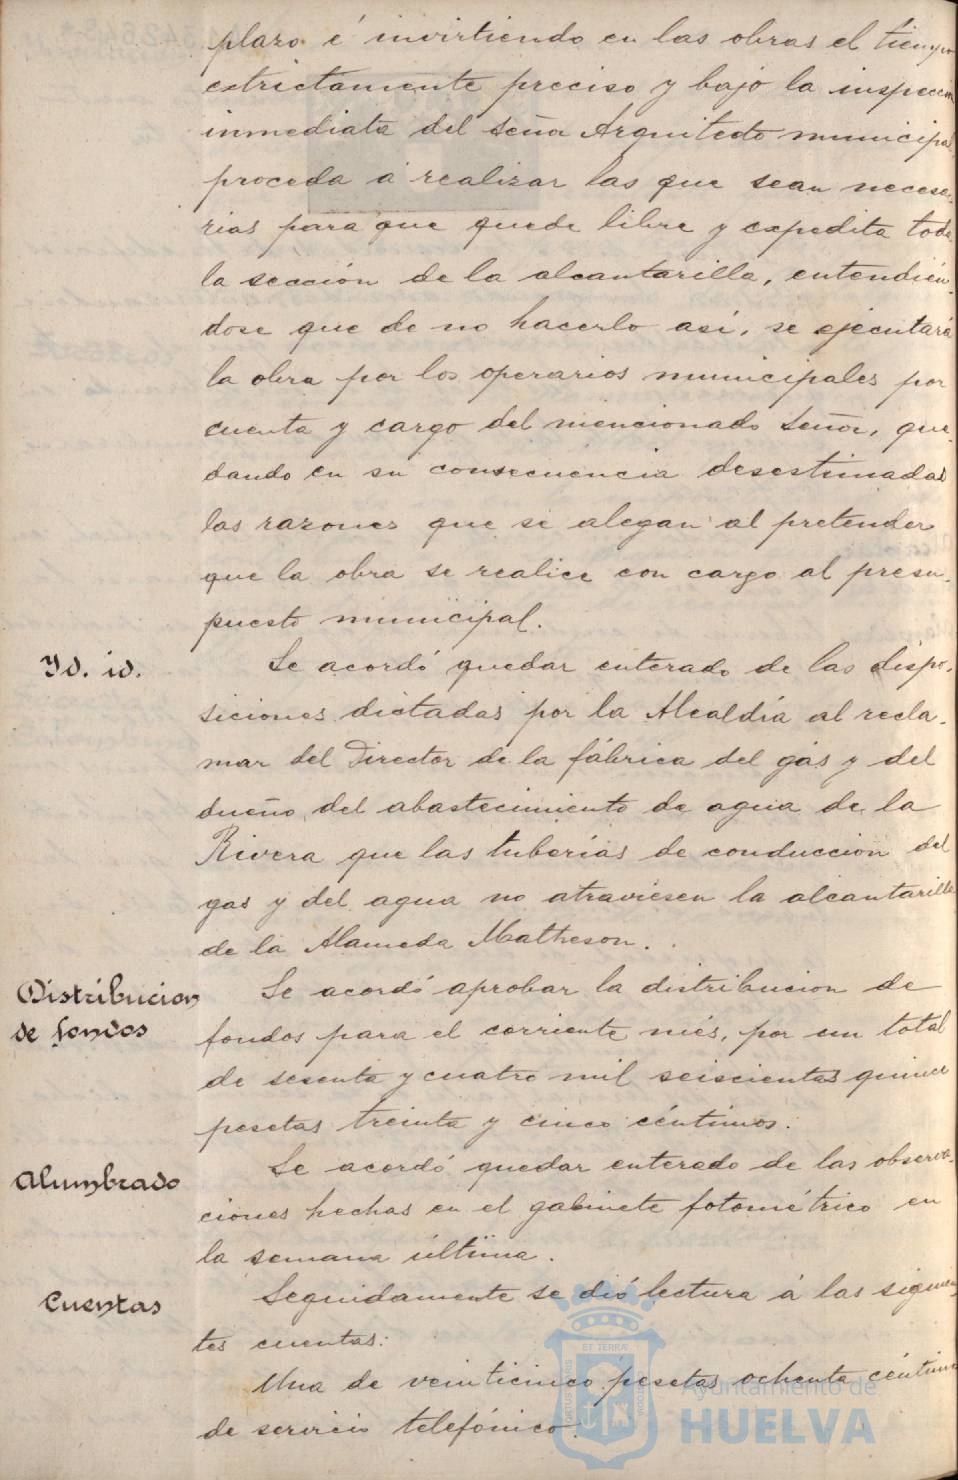 plazo é invirtiendo en las obras el tiempo
extrictamente preciso y bajo la inspección
inmediata del señor Arquitecto municipal
proceda á realizar las que sean necesa-
rias para que quede libre y expedita toda
la sección de la alcantarilla, entendién-
dose que de no hacerlo así, se ejecutará
la obra por los operarios municipales por
cuenta y cargo del mencionado Señor, que-
dando en su consecuencia desestimadas
las razones que se alegan al pretender
que la obra se realice con cargo al presu-
puesto municipal.
Yd. id. Se acordó quedar enterado de las dispo-
siciones dictadas por la Alcaldía al recla-
mar del Director de la fábrica del gás y del
dueño del abastecimiento de agua de la
Rivera que las tuberías de conducción del
gas y del agua no atraviesen la alcantarilla
de la Alameda Matheson.
Distribucion Se acordó aprobar la distribucion de
de fondos fondos para el corriente més, por un total
de sesenta y cuatro mil seiscientas quince
pesetas treinta y cinco céntimos.
Alumbrado Se acordó quedar enterado de las observa-
ciones hechas en el gabinete fotométrico en
la semana última.
Cuentas Seguidamente se dió lectura á las siguien-
tes cuentas:
Una de veinticinco pesetas ochenta céntimos
de servicio telefónico.
ET TERRAE
Ayuntamiento de
HUELVA